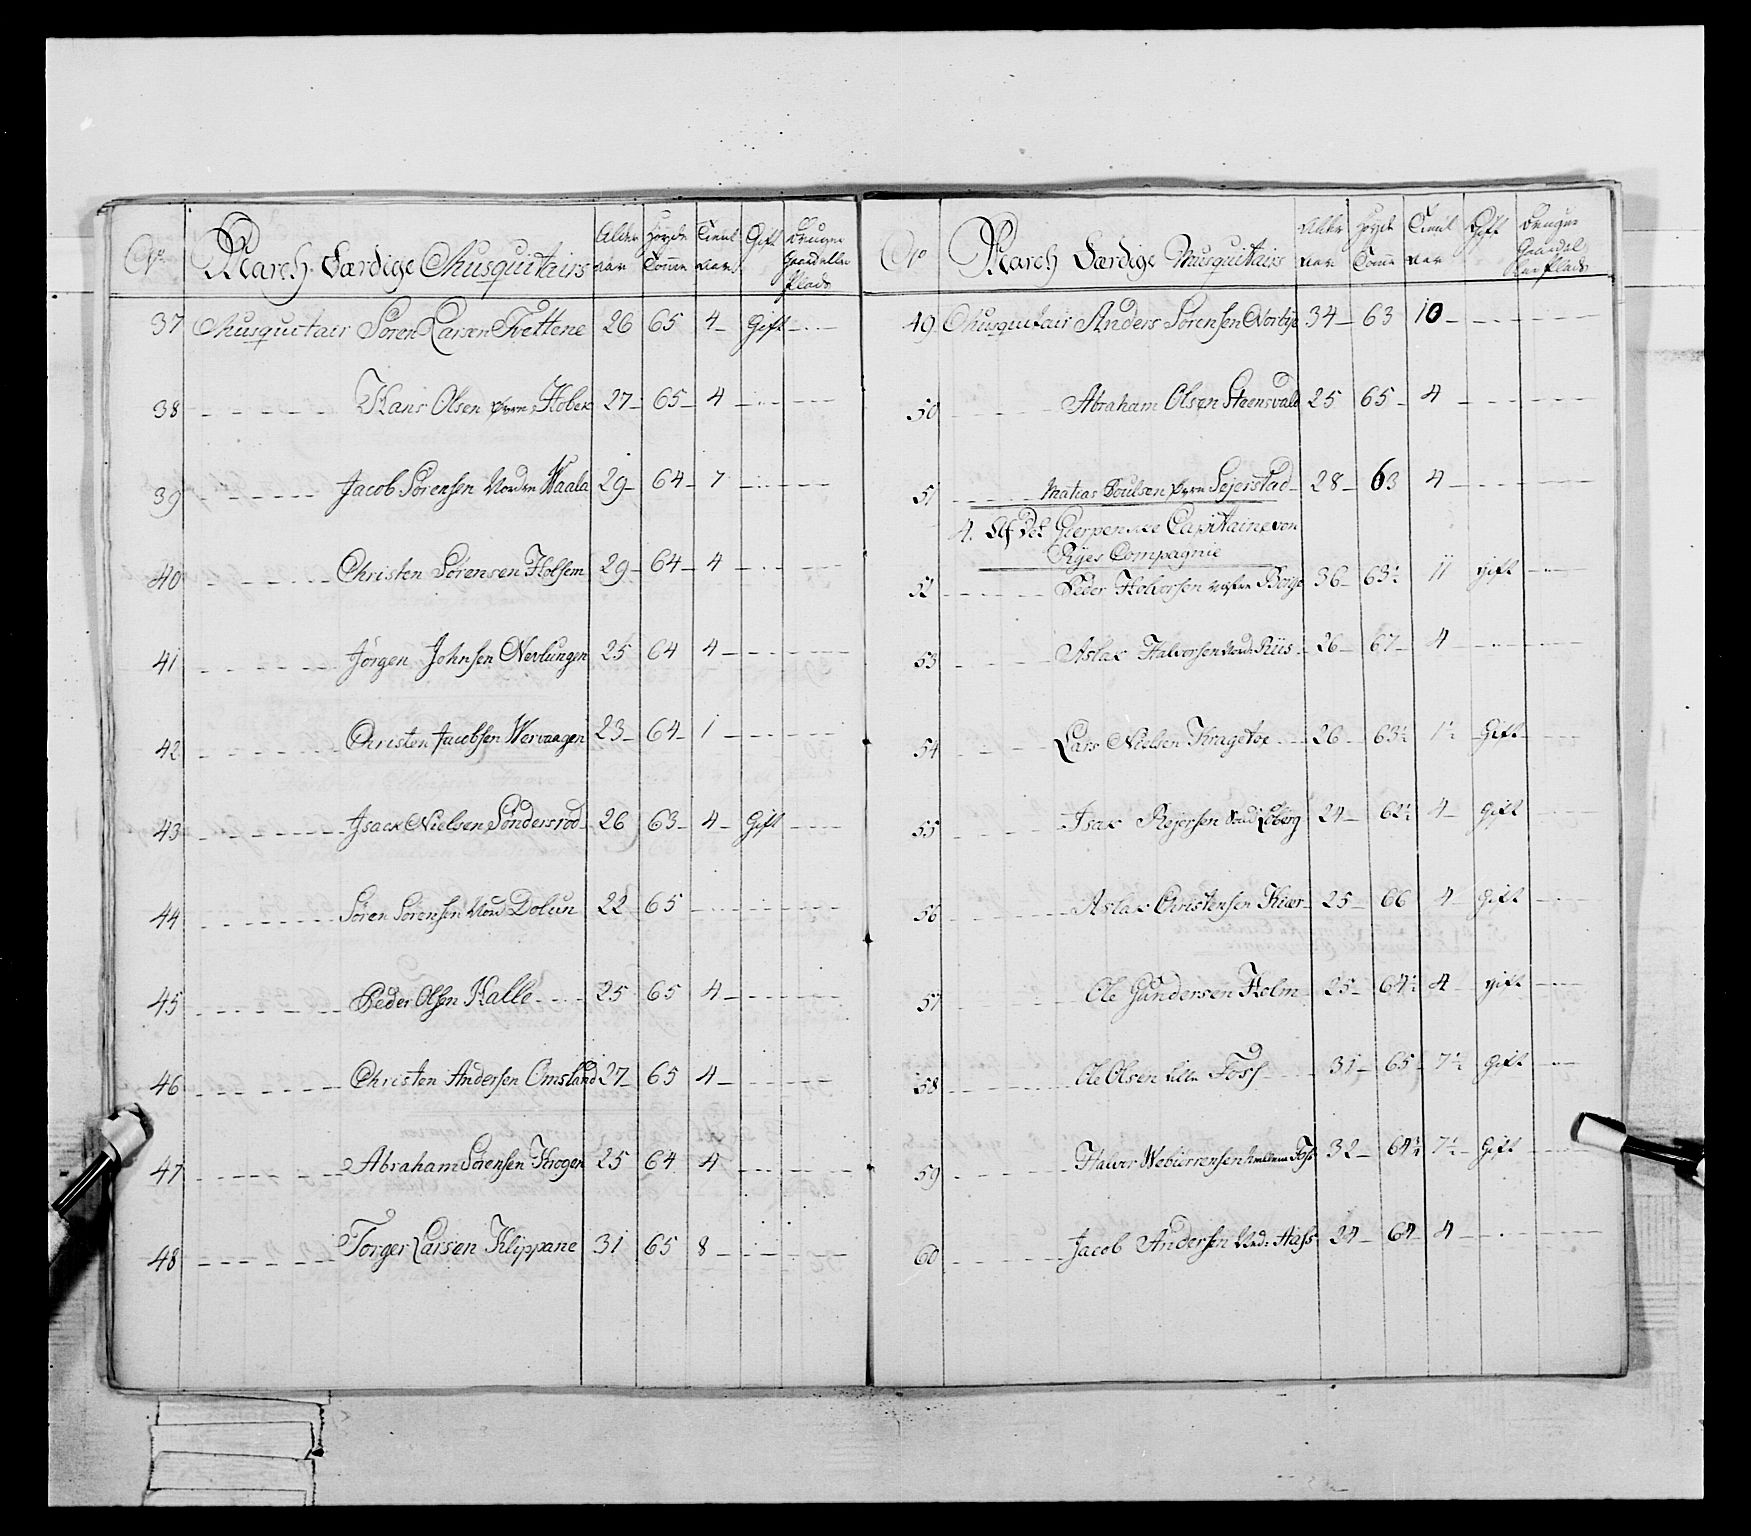 No March Færdige Musquitairs Alder aar Høyde Tomm Tient aar Gift Bruger Gaard eller Plads
37 Musquitair Søren Larsen Tvettene 26 65 4 Gift
38 Hans Olsen øvre Holek 27 65 4
39 Jacob Sørensen Nordre Waala 29 64 7
40 Christen Sørensen Holsem 29 64 4
41 Jørgen Johnsen Nevlungen 25 64 4
42 Christen Jacobsen Wervaagen 23 64 1
43 Isack Nielsen Søndersrød 26 63 4 Gift
44 Søren Sørensen Nord Dolun 22 65
45 Peder Olsen Halle 25 65 4
46 Christen Andersen Omsland 27 65 4
47 Abraham Sørensen Krogen 25 64 4
48 Torger Larsen Klippane 31 65 8
No March Færdige Musquitairs Alder aar Høyde Tomm Tient aar Gift Bruger Gaard eller Plads
49 Musquitair Anders Sørensen Nortye 34 63 10
50 Abraham Olsen Steensvald 25 65 4
51 Matias Poulsen øvre Sejerstad 28 63 4
4. Af Det Gierpenske Capitaine von
Ryes Compagnie
52 Peder Holvorsen vestre Borge 36 63½ 11 gift
53 Aslak Halvorsen Nord: Riis 26 67 4
54 Lars Nielsen Kragetoe 26 63½ 1½ Gift
55 Isak Rejersen Løberg 24 62½ 4 gift
56 Aslak Christensen Kiær 25 66 4 gift
57 Ole Gundersen Holm 25 64½ 4 gift
58 Ole Olsen Lille Foss 31 65 7½ gift
59 Halvor Foss 32 64½ 7½ Gift
60 Jacob Andersen Nrd: Aass 24 64 4